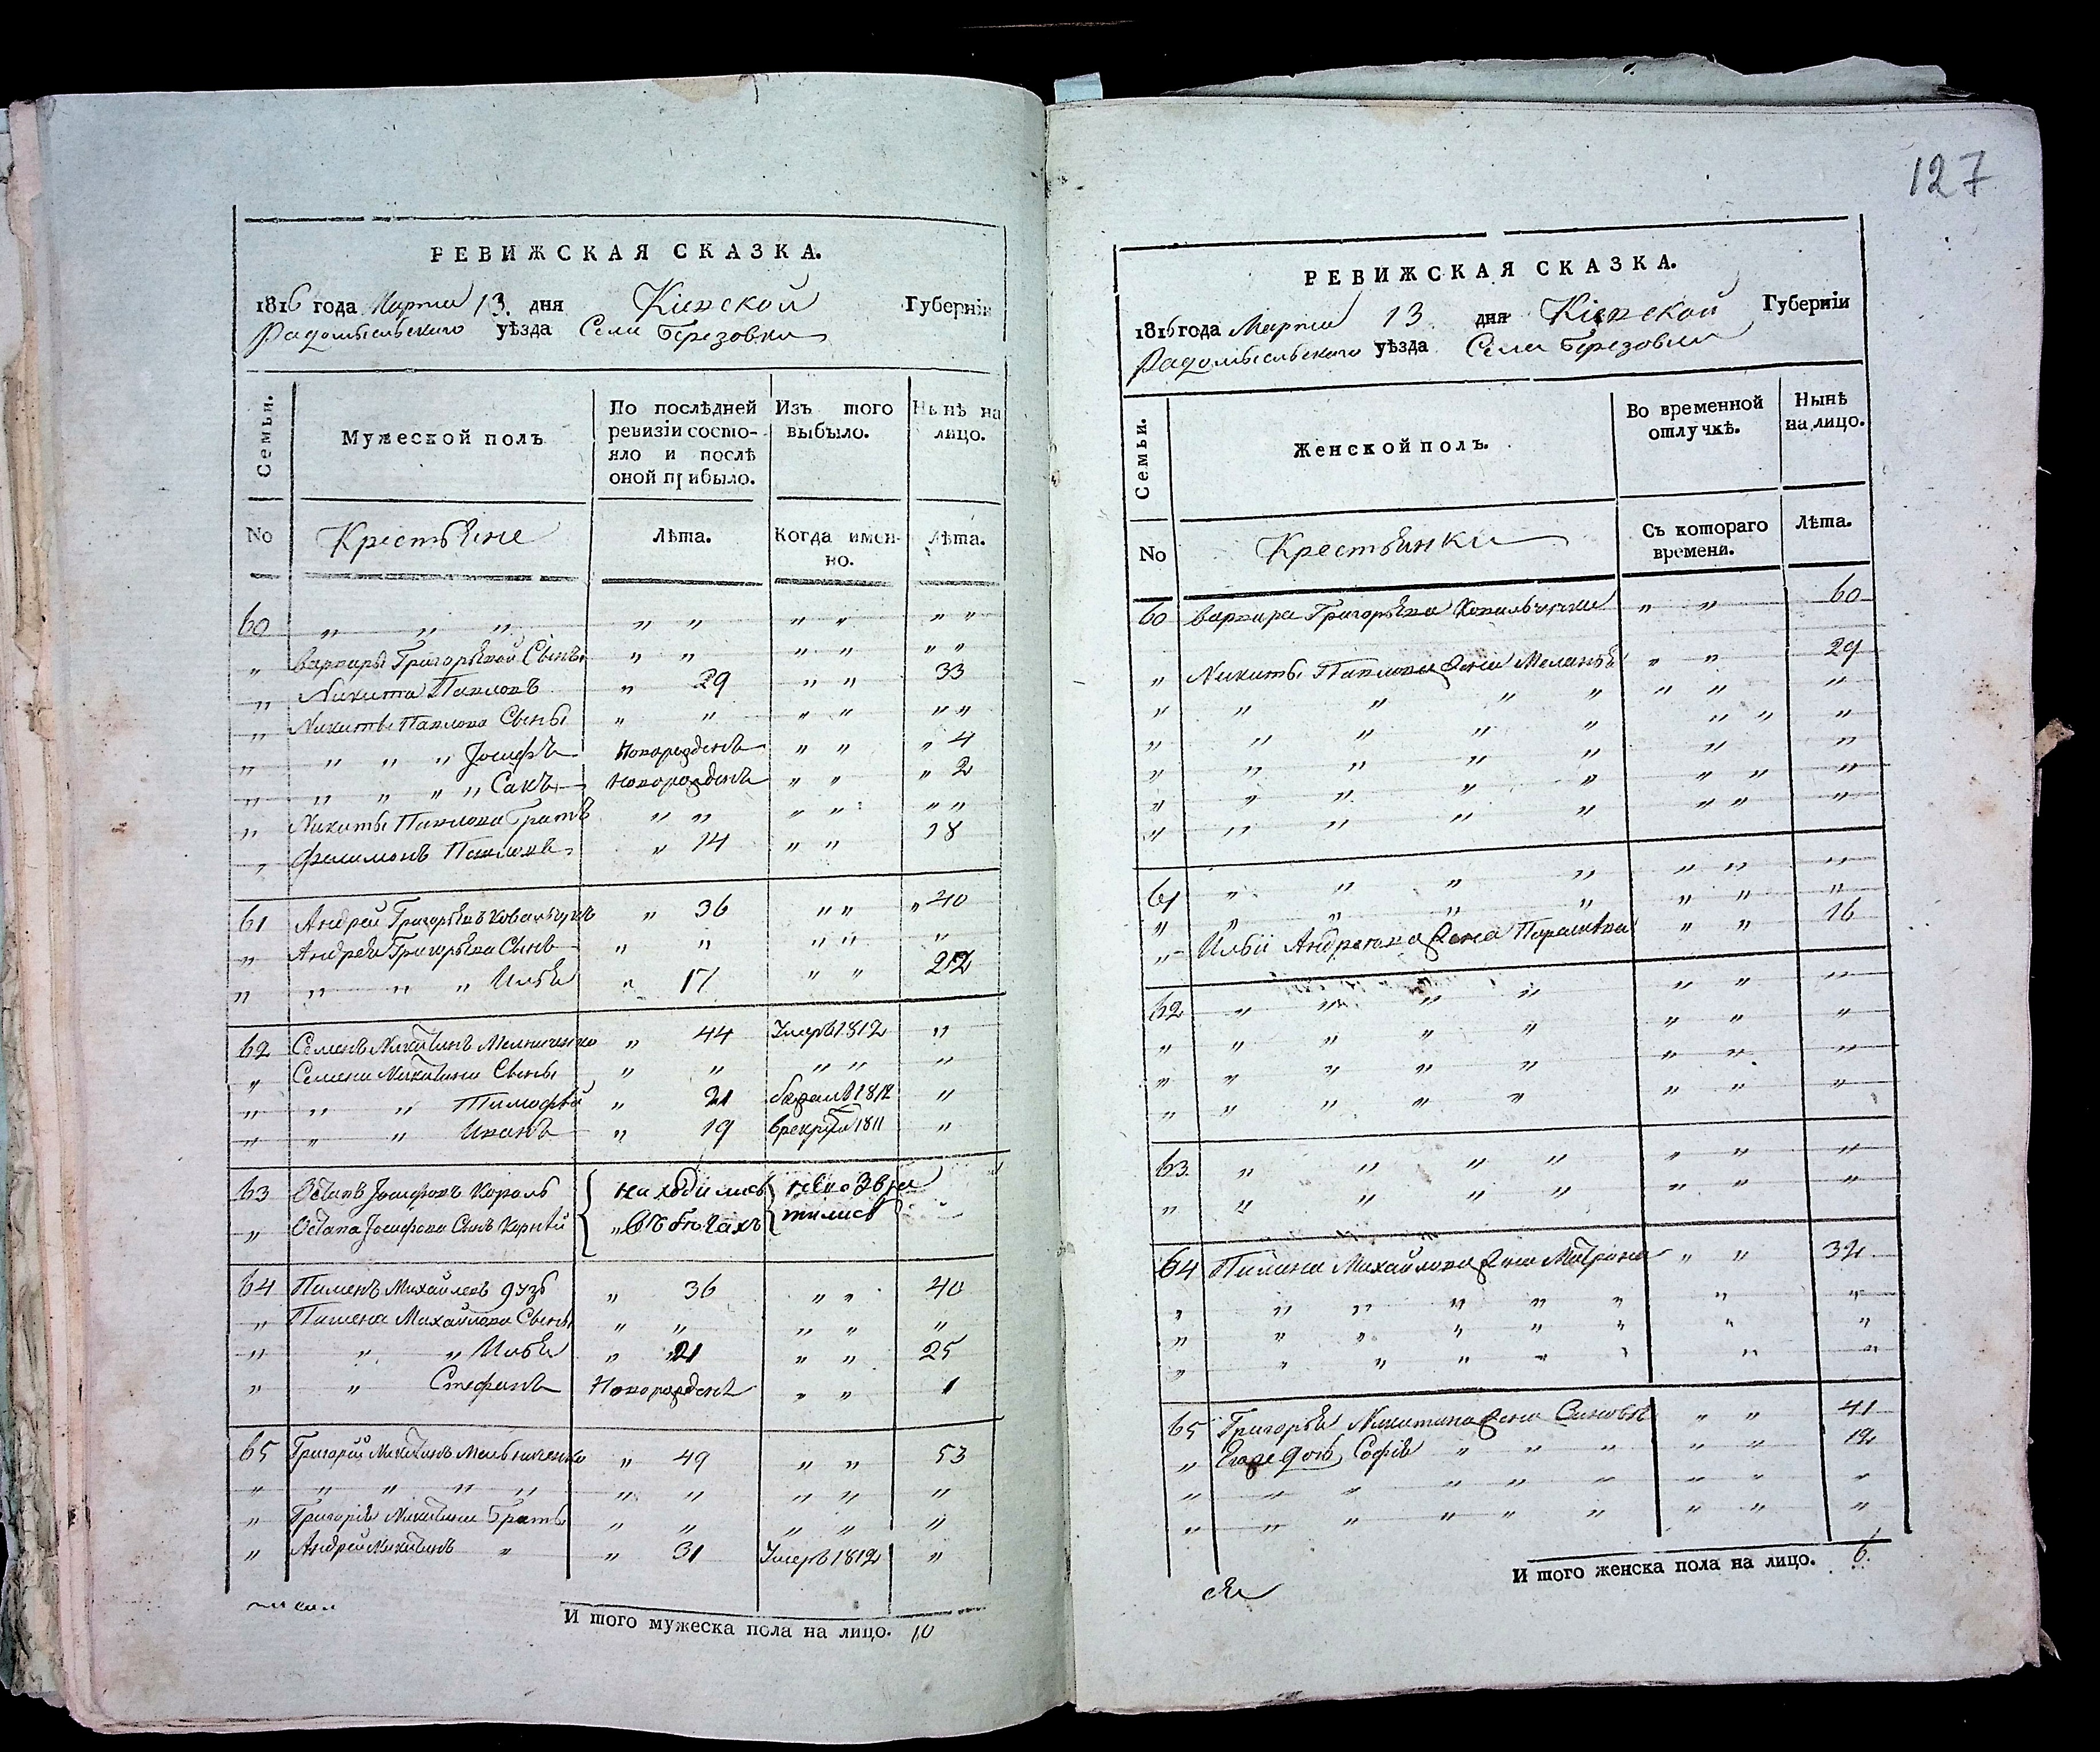 РЕВИЖСКАЯ СКАЗКА.
1816 года Марта 13. дня Кіевской Губерніи
Радомысльского уѣзда Села Березовки
Семьи.
Мужеской полъ
По послѣдней ревизіи состо-
яло и послѣ
оной прибыло.
Изъ того
выбыло.
Нынѣ на
лицо.
No
Крестьяне
Лѣта.
Когда имен-
но.
Лѣта.
60 „ „ „ „ „ „ „ „ „
„ Варвары Григорьевой Сынъ „ „ „ „ „ „
„ Никита Павловъ „ 29 „ „ 33
„ Никиты Павлова Сыны „ „ „ „ „ „
„ „ „ „ Іосифъ Новорожденъ „ „ „ 4
„ „ „ „ „ Сакъ Новорожденъ „ „ „ 2
„ Никиты Павлова Братъ „ „ „ „ „ „
„ Филимонъ Павловъ „ 14 „ „ 18
61 Андрей Григорьевъ Ковальчукъ „ 36 „ „ „ 40
„ Андрея Григорьева Сынъ „ „ „ „ „
„ „ „ „ Илья „ 17 „ „ 21
62 Семенъ Никитинъ Мельниченко „ 44 Умеръ 1812 „
„ Семена Никитина Сыны „ „ „ „ „
„ „ „ Тимофѣй „ 21 бѣжалъ 1812 „
„ „ „ Иванъ „ 19 в рекруты 1811 „
63 Остапъ Іосифовъ Король находились невозвра
„ Остапа Іосифова Сынъ Корнѣй „ въ бѣгахъ тились
64 Пименъ Михайловъ „ 36 „ „ 40
„ Пимена Михайлова Сыны „ „ „ „ „
„ „ „ Илья „ 21 „ „ 25
„ „ Стефанъ Новорожденъ „ „ 1
65 Григорій Никитинъ Мельниченко „ 49 „ „ 53
„ „ „ „ „ „ „ „ „ „
„ Григорія Никитина Братъ „ „ „ „ „
„ Андрей Никитинъ „ „ 31 Умеръ 1812 „
И того мужеска пола на лицо. 10
127
РЕВИЖСКАЯ СКАЗКА.
1816 года Марта 13 дня Кіевской Губерніи
Радомысльского уѣзда Села Березовки
Семьи.
Женской полъ.
Во временной
отлучкѣ.
Нынѣ
на лицо.
No
Крестьянки
Съ котораго
времени.
Лѣта.
60 Варвара Григорьева Ковальчучка „ „ 60
„ Никиты Павлова жена Меланья „ „ 29
„ „ „ „ „ „ „ „
„ „ „ „ „ „ „ „
„ „ „ „ „ „ „
„ „ „ „ „ „ „ „
„ „ „ „ „ „ „ „
61 „ „ „ „ „ „ „
„ „ „ „ „ „ „ „
„ Ильи Андреева жена Парасковія „ „ 16
62 „ „ „ „ „ „ „
„ „ „ „ „ „ „ „
„ „ „ „ „ „ „ „
„ „ „ „ „ „ „ „
63 „ „ „ „ „ „ „
„ „ „ „ „ „ „ „
64 Пимена Михайлова жена Матрона „ „ 32
„ „ „ „ „ „ „ „
„ „ „ „ „ „ „ „
„ „ „ „ „ „ „ „
65 Григорья Никитина жена „ „ 41
„ Егоже дочь Софія „ „ „ „ „ 12
„ „ „ „ „ „ „ „ „
„ „ „ „ „ „ „ „ „
И того женска пола на лицо. 6.